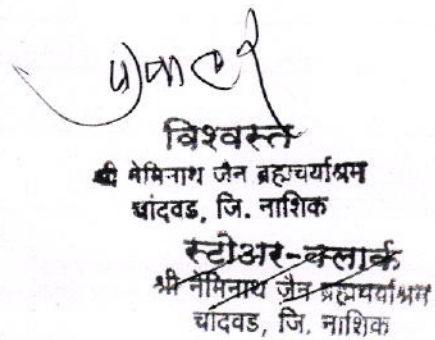 विश्वस्त
श्री नेमिनाथ जैन ब्रह्मचर्याश्रम
चांदवड, जि. नाशिक
स्टोअर-क्लार्क
श्री नेमिनाथ जैन ब्रह्मचर्याश्रम
चांदवड, जि. नाशिक